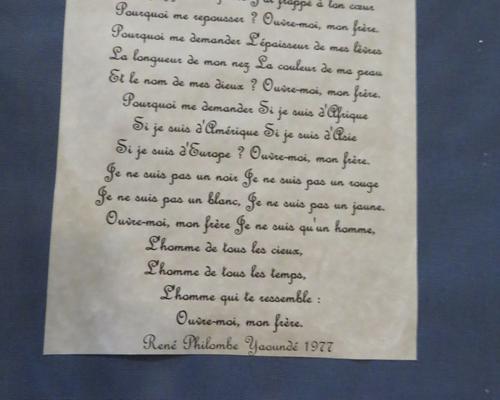 frappé à ton cœur
Pourquoi me repousser ? Ouvre-moi, mon frère.
Pourquoi me demander L'épaisseur de mes lèvres
La longueur de mon nez La couleur de ma peau
Et le nom de mes dieux ? Ouvre-moi, mon frère.
Pourquoi me demander Si je suis d'Afrique
Si je suis d'Amérique Si je suis d'Asie
Si je suis d'Europe ? Ouvre-moi, mon frère.
Je ne suis pas un noir Je ne suis pas un rouge
Je ne suis pas un blanc, Je ne suis pas un jaune.
Ouvre-moi, mon frère Je ne suis qu'un homme,
L'homme de tous les cieux,
L'homme de tous les temps,
L'homme qui te ressemble :
Ouvre-moi, mon frère.
René Philombe Yaoundé 1977